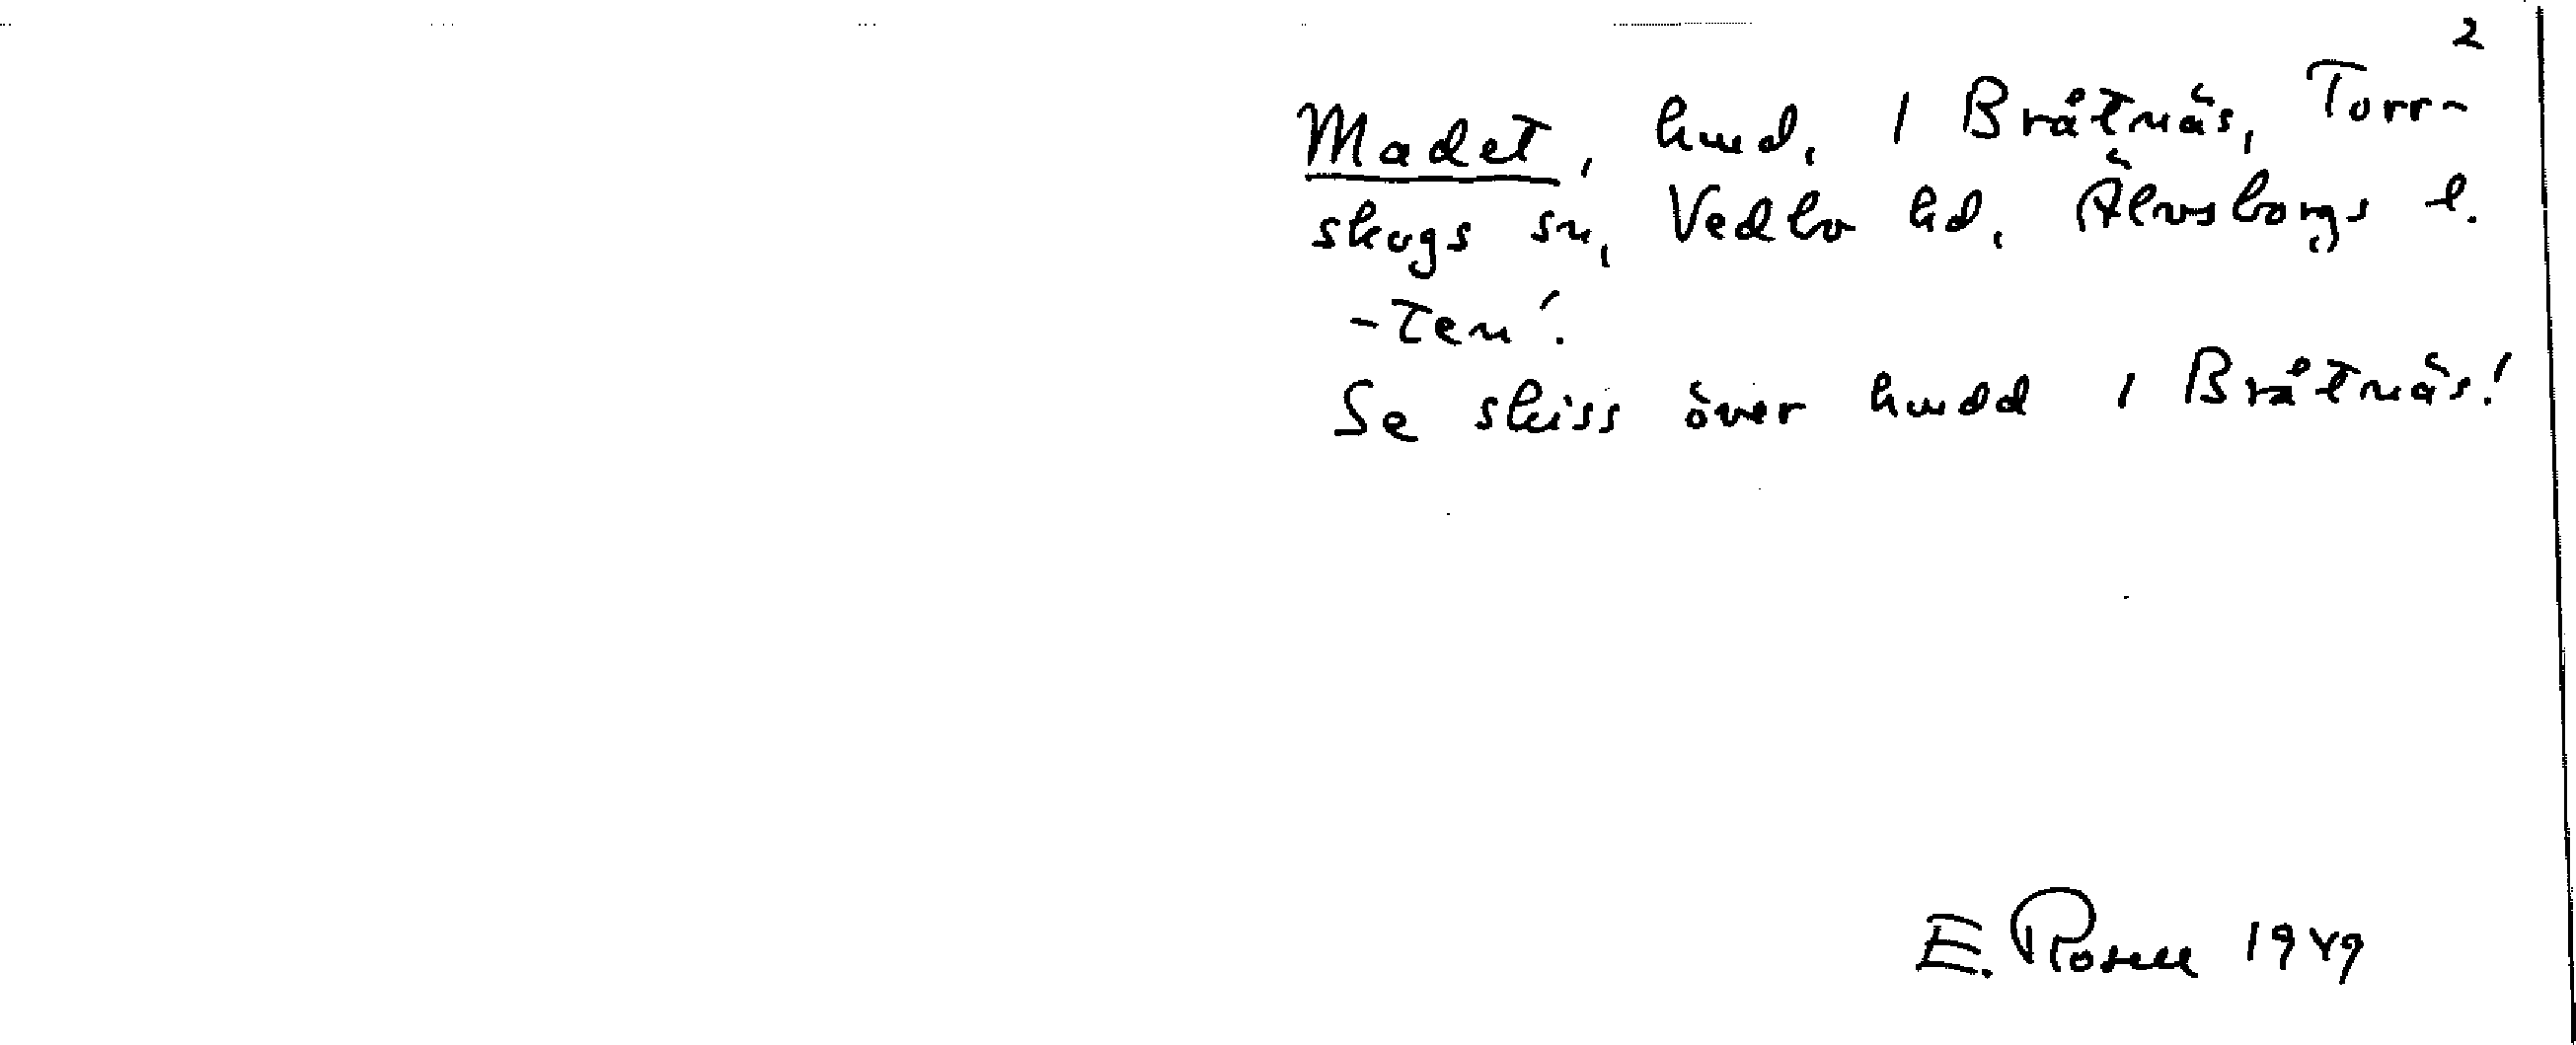 2
Madet, hmd, i Bråtnäs, Torr-
skogs sn, Vedbo hd, Älvsborgs l.
-ten'.
Se skiss över hmdd i Bråtnäs!
E. Rosell 1949